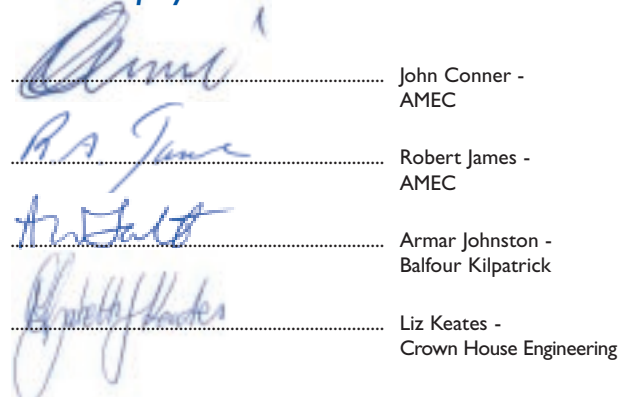 John Conner -
AMEC
R.A. James
Robert James -
AMEC
Armar Johnston -
Balfour Kilpatrick
Liz Keates -
Crown House Engineering